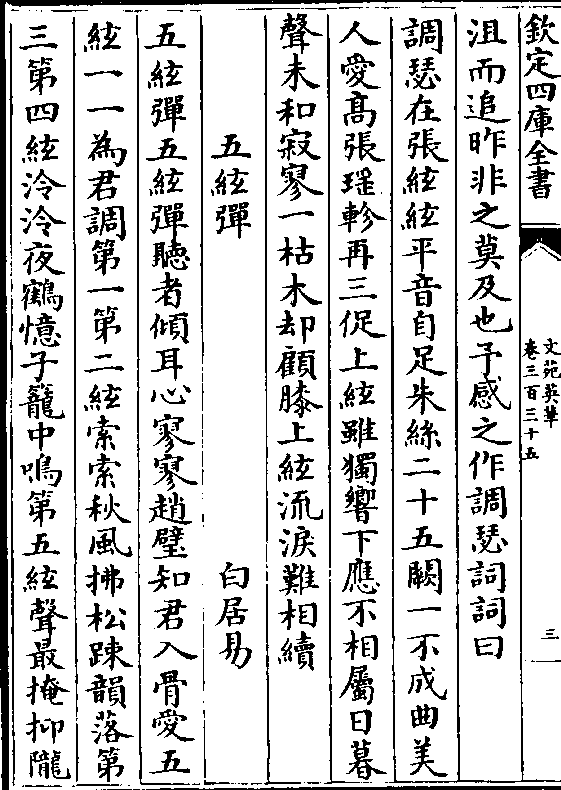 欽定四庫全書
文苑英華
卷三百三十五
三
沮而追昨非之莫及也予感之作調瑟詞詞曰
調瑟在張絃絃平音自足朱絲二十五闕一不成曲美
人愛髙張瑶軫再三促上絃雖獨響下應不相屬日暮
聲未和寂寥一枯木却顧膝上絃流淚難相續
五絃彈 白居易
五絃彈五絃彈聽者傾耳心寥寥趙璧知君入骨愛五
絃一一為君調第一第二絃索索秋風拂松踈韻落第
三第四絃泠泠夜鶴憶子籠中鳴第五絃聲最掩抑隴